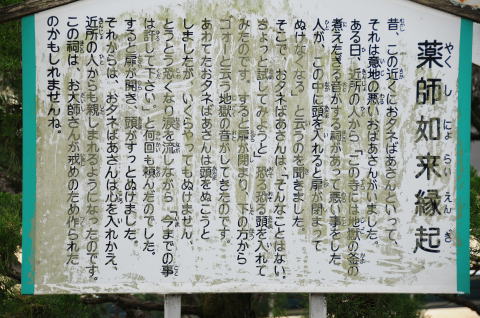 薬師如来縁起
昔、この近くにおタネばあさんといって、
それは意地の悪いおばあさんがいました。
ある日、近所の人から「この寺には地獄の釜の
煮えたぎる音がする祠があって悪い事をした
人が、この中に頭を入れると扉が閉まって
ぬけなくなる」と云うのを聞きました。
そこで、おタネばあさんは、「そんなことはない。
ちょっと試してみようと」恐る恐る頭を入れて
みたのです。すると扉が閉まり、下の方から
ゴォーと云う地獄の音がしてきたのです。
あわてたおタネばあさんは頭をぬこうと
しましたが、いくらやってもぬけません。
とうとう恐くなり涙を流しながら「今までの事
は許して下さい」と何回も頼んだのでした。
すると扉が開き、頭がすっとぬけました。
それからは、おタネばあさんは心を入れかえ、
近所の人からも親しまれるようになったのです。
この祠は、お大師さんが戒めのため作られた
のかもしれませんね。